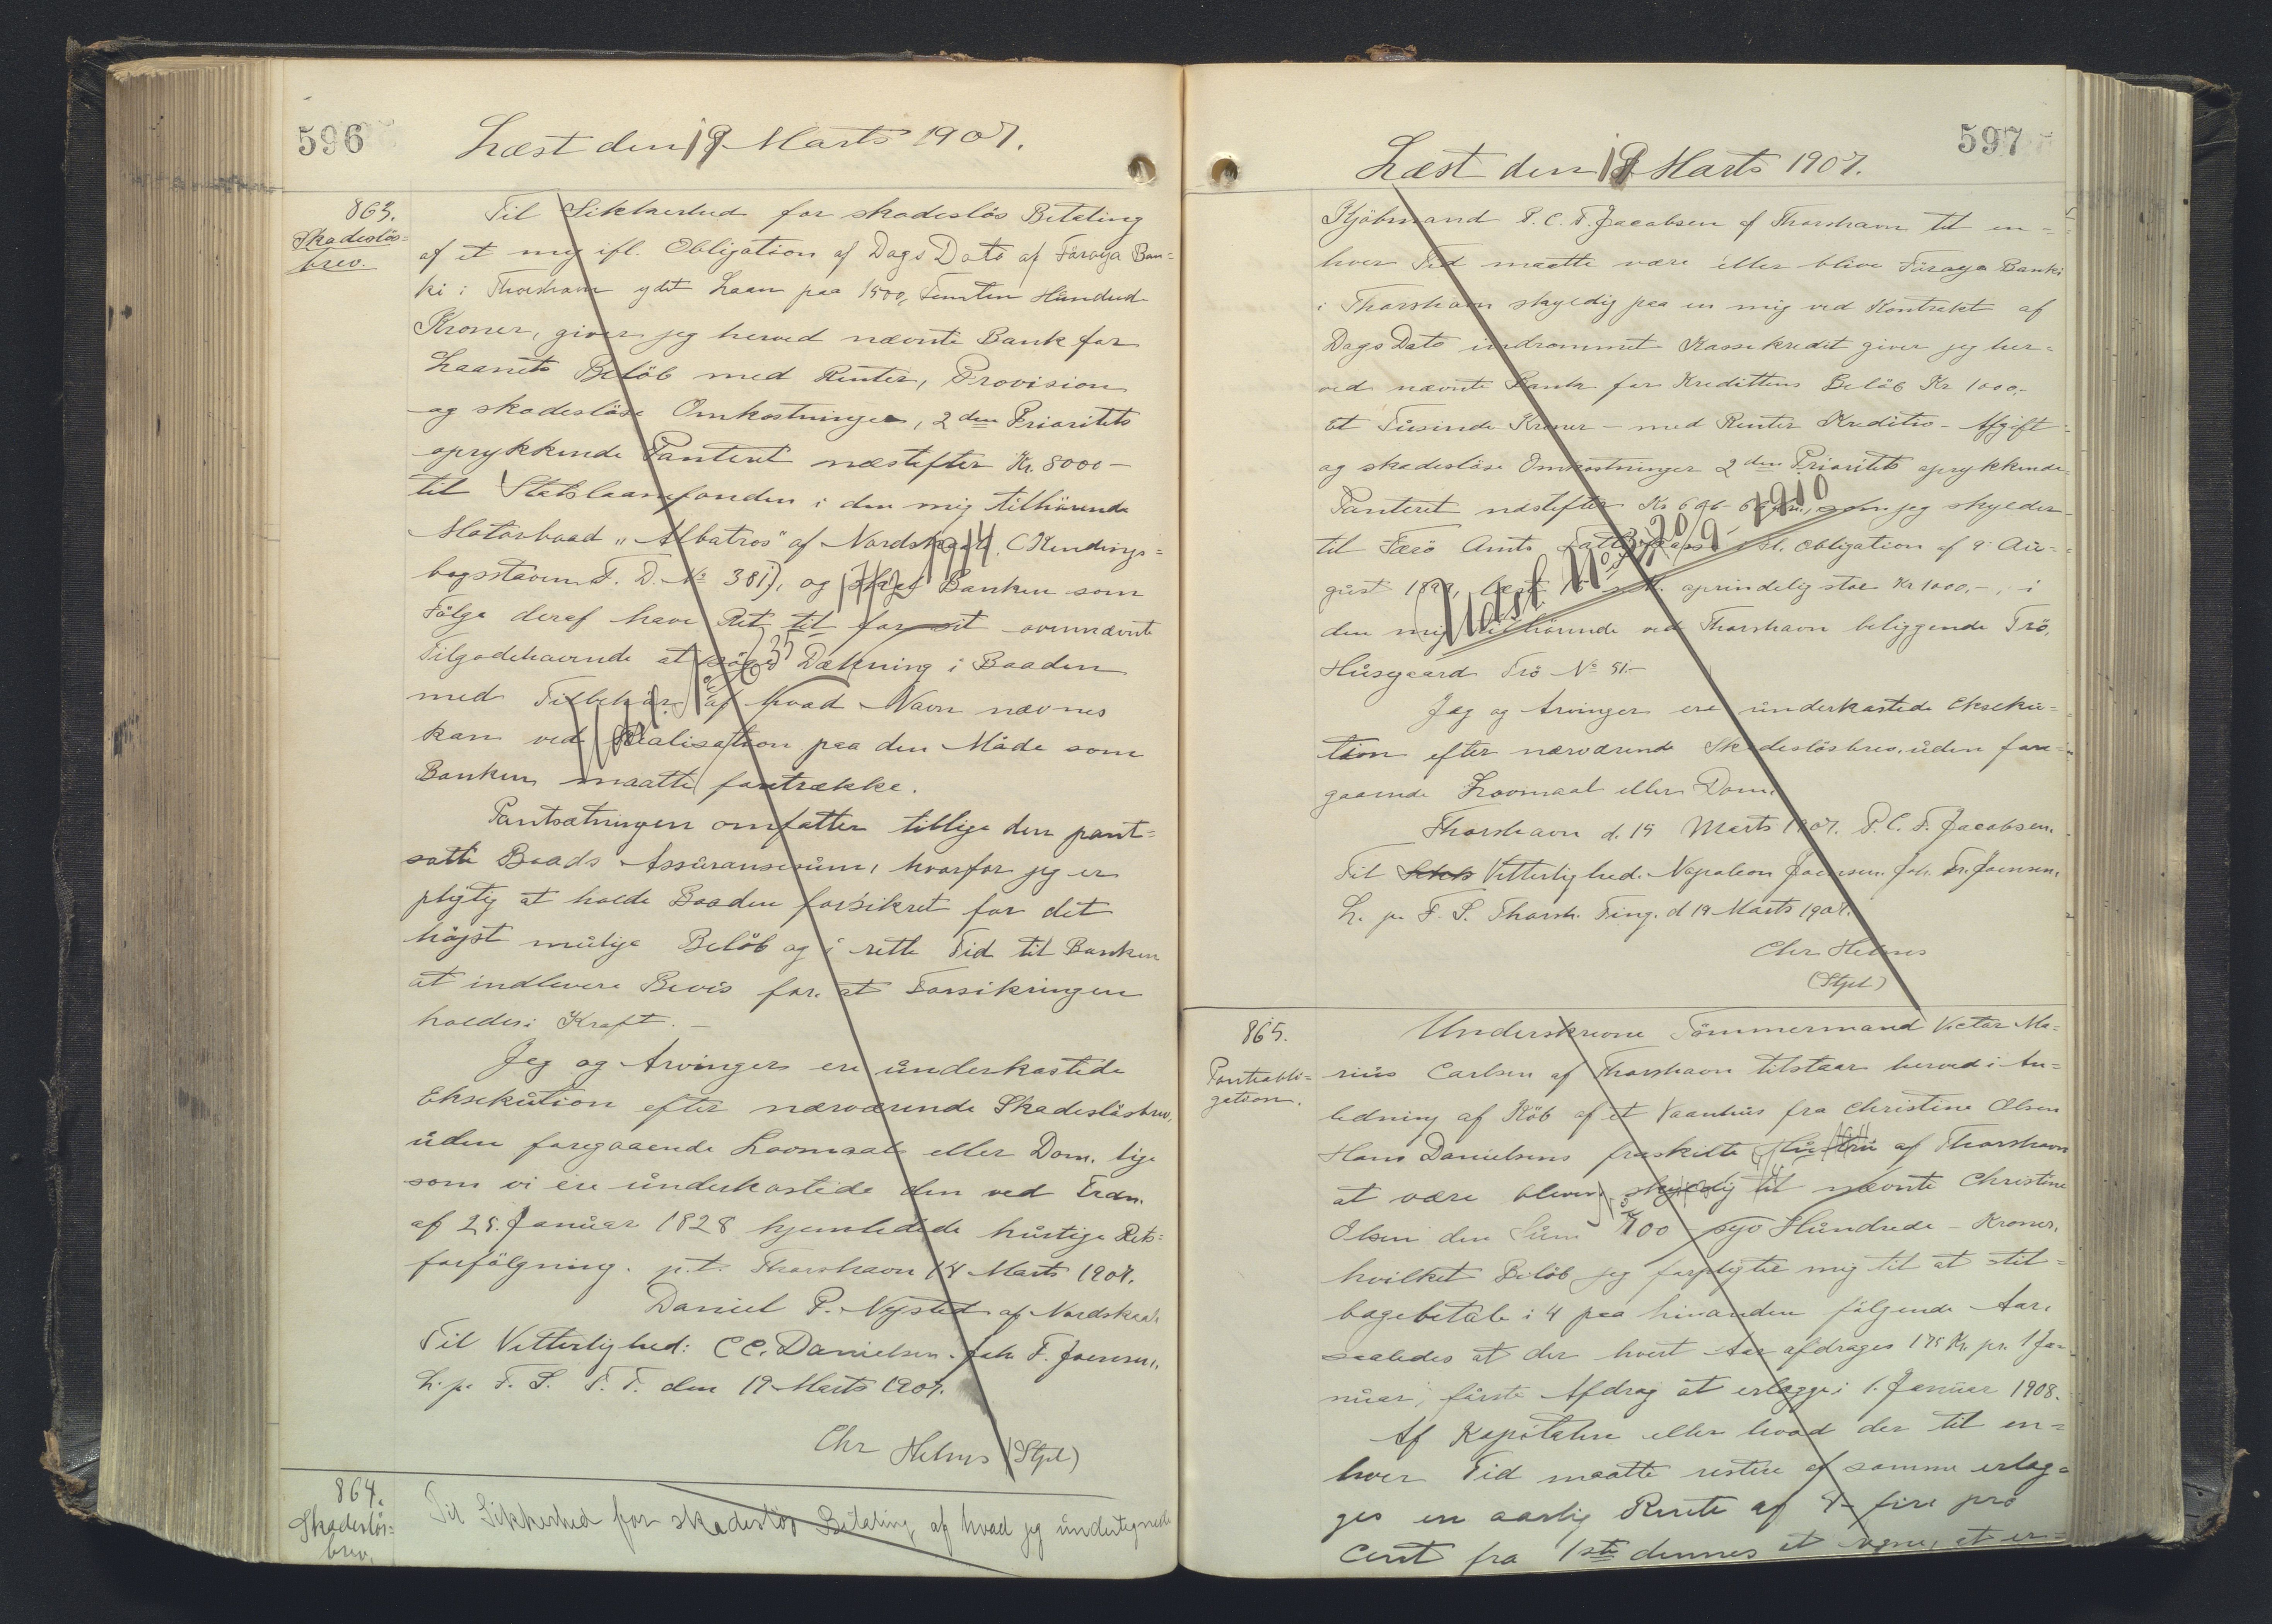 596
Læst den 19 Marts 1907.
863.
Skadeslös=
brev.
Til Sikkerhed for skadeslös Betaling
af et mig ifl. Obligation af Dags Dato af Föroya Ban=
ki i Thorshavn ydet Laan paa 1500, Femten Hundred
Kroner, giver jeg herved nævnte Bank for
Laanets Belöb med Renter, Provision
og skadeslöse Omkostninger, 2den Prioritets
oprykkende Panteret næstefter Kr. 8000 —
til Statslaanefonden i den mig tilhörende
Motorbaad „Albatros" af Nordskaale, (Kendings=
bogstaver F. D. No 381), og skal Banken som
Fölge deraf have Ret til for sit ovennævnte
Tilgodehavende at söge Dækning i Baaden
med Tilbehör af hvad Navn nævnes
kan ved Realisation paa den Måde som
Banken maatte foretrække.
Pantsætningen omfatter tillige den pant=
satte Baads Assuransesum, hvorfor jeg er
pligtig at holde Baaden forsikret for det
højst mulige Belöb og i rette Tid til Banken
at indlevere Bevis for at Forsikringen
holdes i Kraft. —
Jeg og Arvinger ere underkastede
Eksekution efter nærværende Skadeslösbrev,
uden foregaaende Lovmaal eller Dom. lige
som vi ere underkastede den ved Frdn.
af 25. Januar 1828 hjemlede hurtige Rets=
forfölgning. p.t. Thorshavn 18 Marts 1907.
Daniel P. Nysted af Nordskaale
Til Vitterlighed: C C. Danielsen. Joh F. Joensen.
L. p. F. S. T. T. den 19 Marts 1907.
Chr Helms (Stpl)
864.
Skadeslös=
brev.
Til Sikkerhed for skadeslös Betaling af hvad jeg undertegnede
597
Læst den 19 Marts 1907.
Kjöbmand P. C. F. Jacobsen af Thorshavn til en=
hver Tid maatte være eller blive Föroya Banki
i Thorshavn skyldig paa en mig ved Kontrakt af
Dags Dato indrömmet Kassekredit giver jeg her=
ved nævnte Bank for Kredittens Belöb Kr 1000,-
et Tusinde Kroner — med Renter Kredits- Afgift
og skadeslöse Omkostninger 2den Prioritets oprykkende
Panteret næstefter Kr 696- som jeg skylder
til Færö Amts ifl. Obligation af 9. Au=
gust oprindelig stor Kr 1000,-, i
den mig tilhörende ved Thorshavn beliggende Trö,
Husgaard Trö No 51.-
Udsl. 20/9 1910
Jeg og Arvinger ere underkastede Eksekú=
tion efter nærværende Skadeslösbrev, uden fore=
gaaende Lovmaal eller Dom.
Thorshavn d. 15 Marts 1907. P. C. F. Jacobsen.
Til Vitterlighed. Napoleon Joensen. Joh. Fr. Joensen.
L. p. F. S. Thorsh. Ting. d 19 Marts 1907.
Chr Helms
(Stpl)
865.
Panteobli=
gation.
Underskrevne Tömmermand Victor Ma=
rius Carlsen af Thorshavn tilstaar herved i An=
ledning af Köb af et Vaanhus fra Christine Olsen
Hans Danielsens fraskilte Hustru af Thorshavn
at være bleven skyldig til nævnte Christine
Olsen den Sum 700 syv Hundrede — Kroner,
hvilket Belöb jeg forpligter mig til at til=
bagebetale i 4 paa hinanden fölgende Aar,
saaledes at der hvert Aar afdrages 175 Kr. pr. 1 Ja=
nuar, förste Afdrag at erlægge i 1. Januar 1908.
Af Kapitalen eller hvad der til en=
hver Tid maatte restere af samme erlæg=
ges en aarlig Rente af 4 – fire pro
Cent fra 1ste dennes at regne, at er=